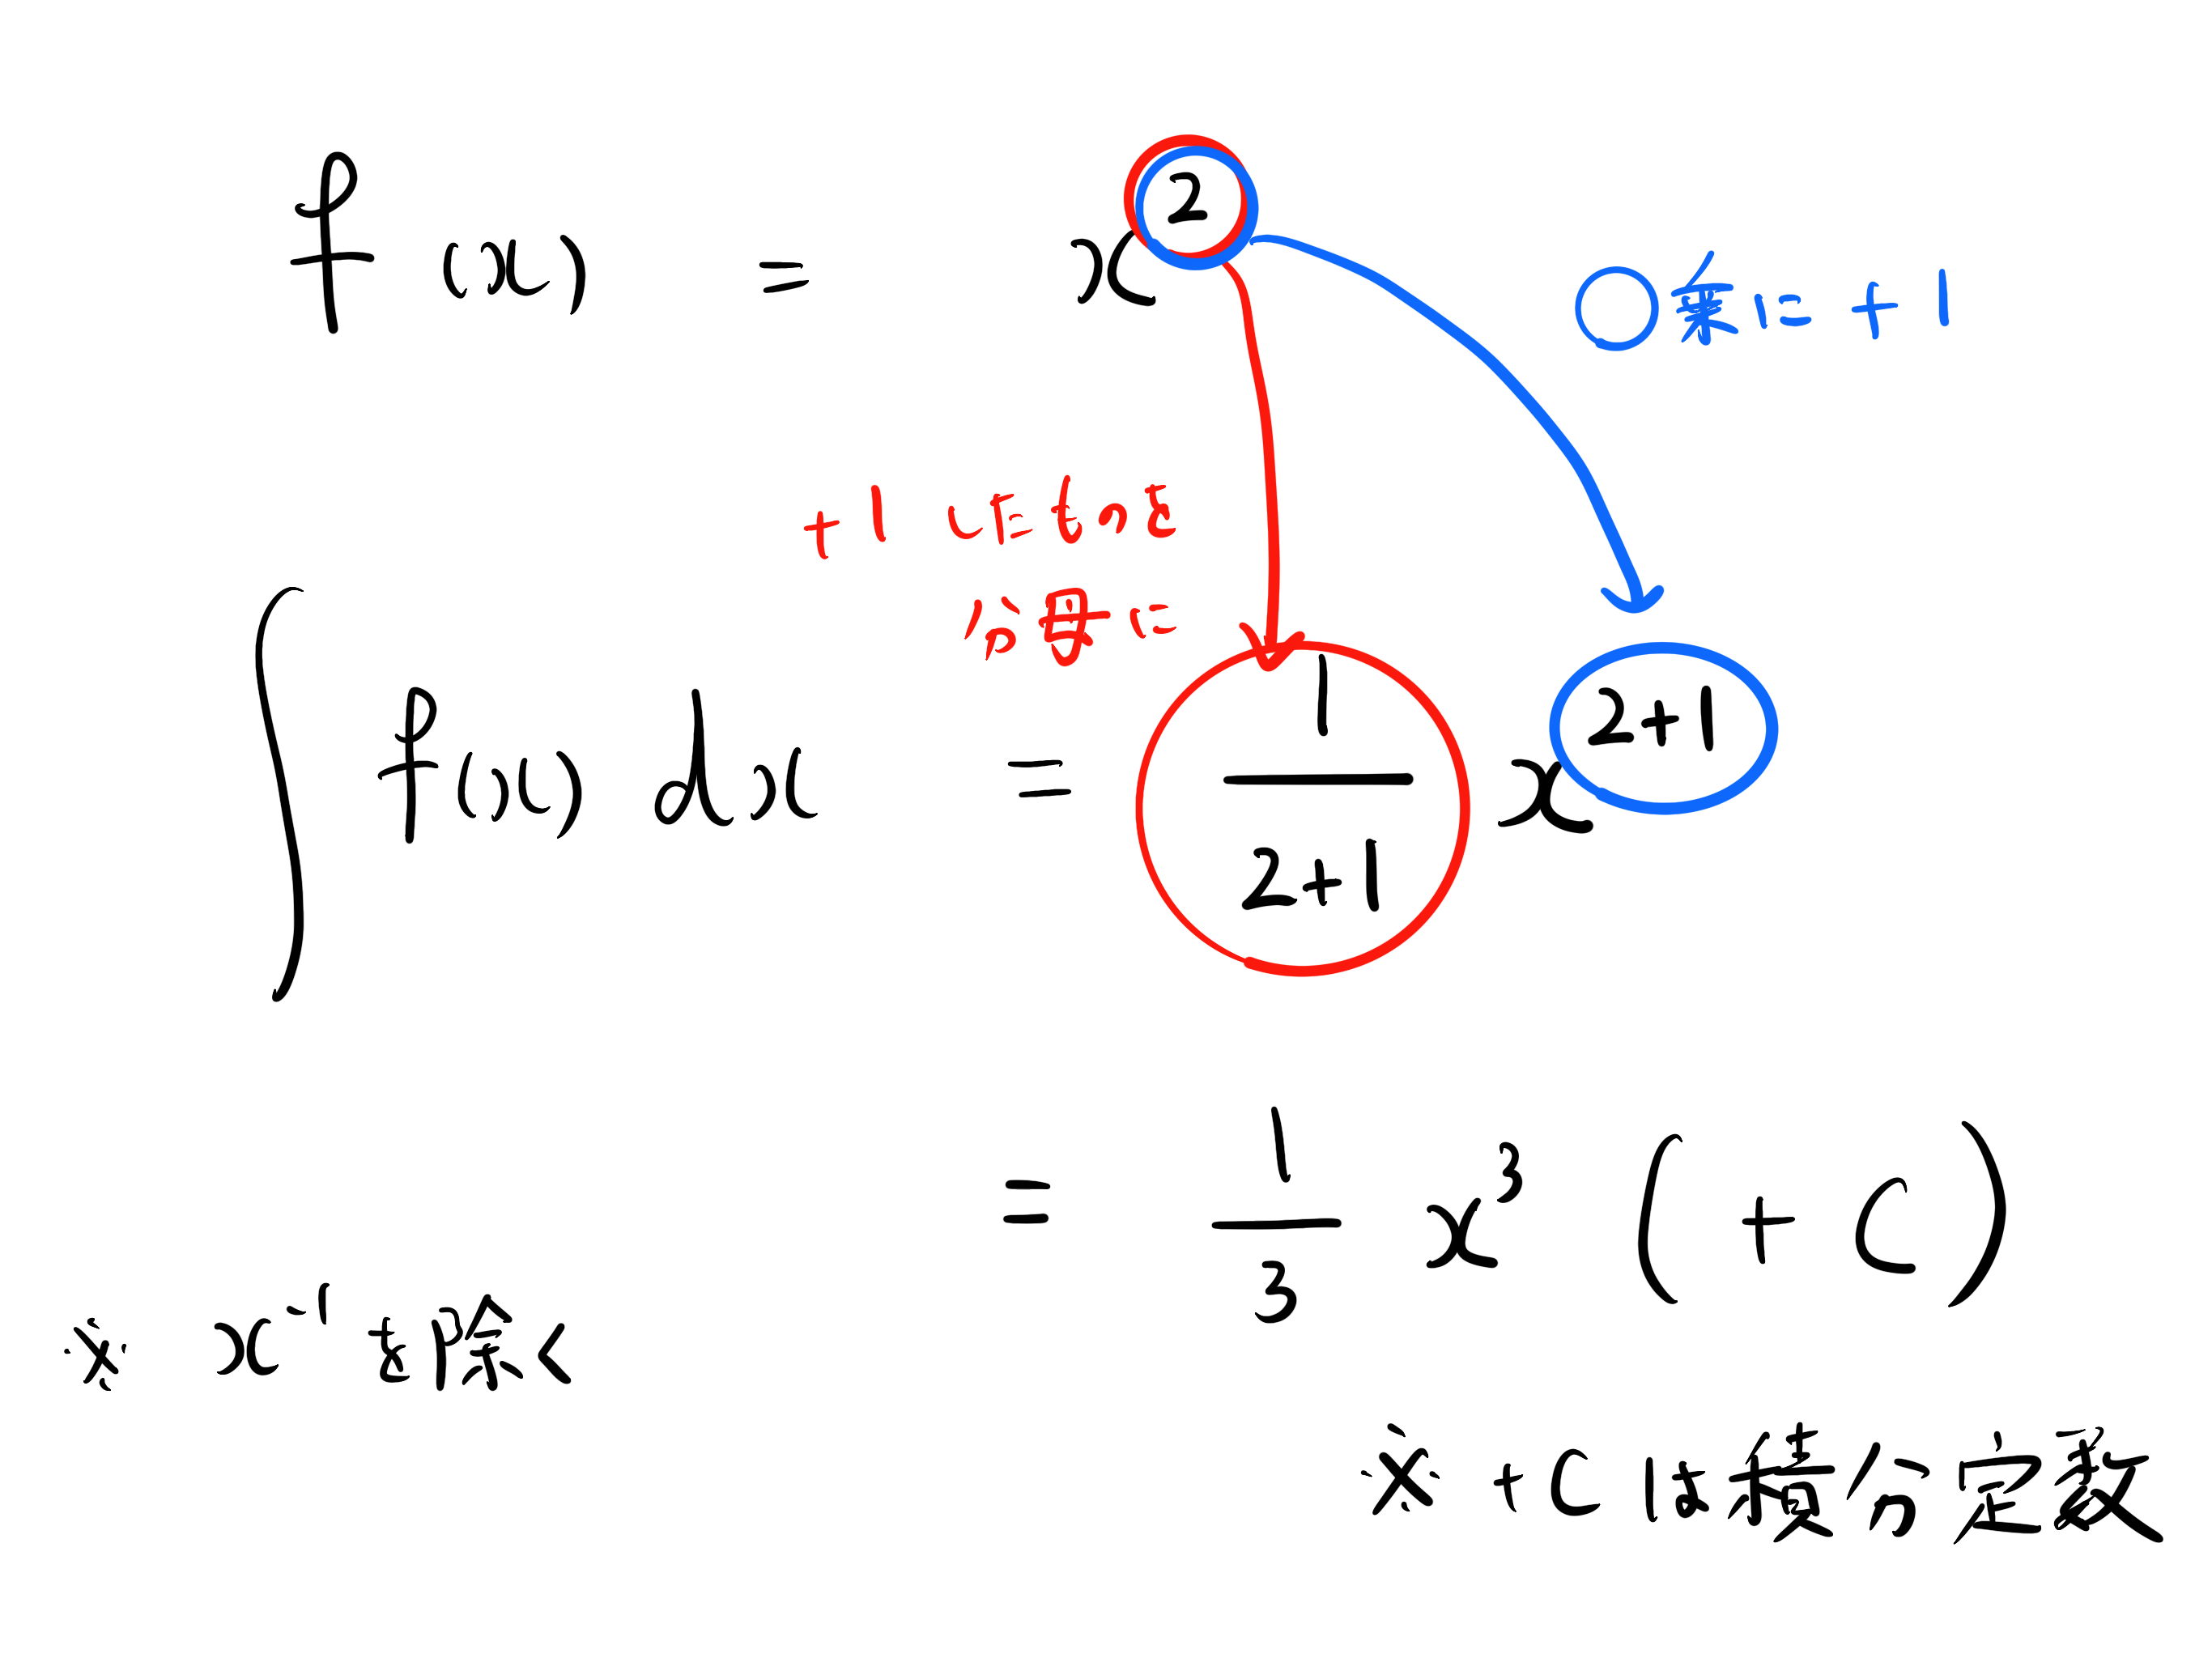 f(x) = x²
○乗に+1
+1したものを
分母に
∫f(x)dx = 1/(2+1) x²⁺¹
= 1/3 x³ (+C)
※ x⁻¹を除く
※ +Cは積分定数